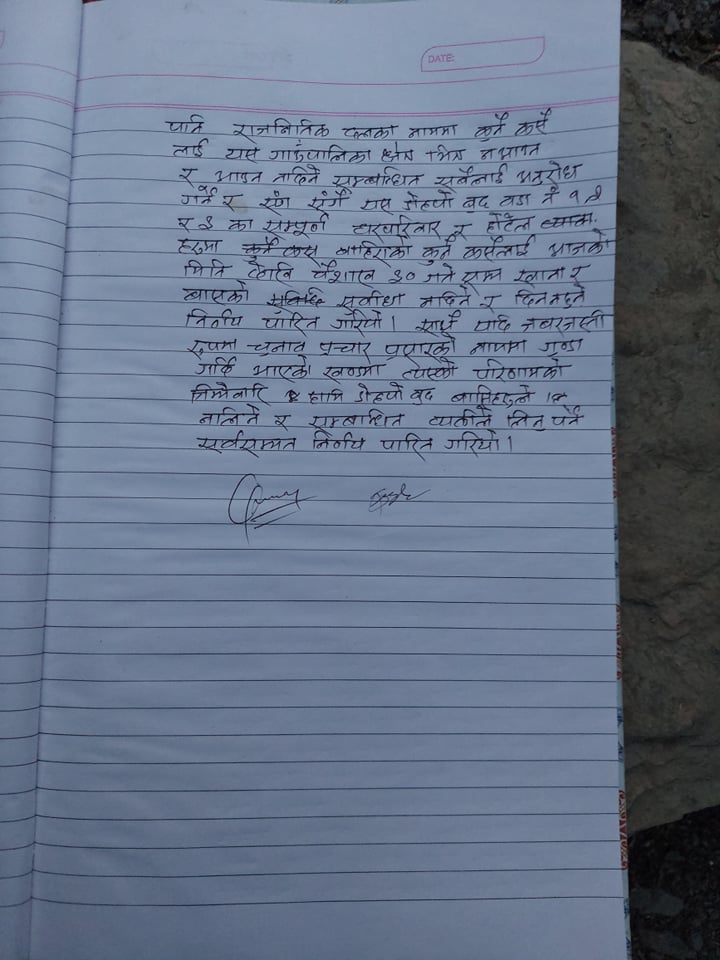 DATE:
पार्ने राजनितिक दलका नाममा कुनै कसै
लाई यस गाउँपालिका क्षेत्र भित्र नआउन
र आउन नदिने सम्बन्धित सबैलाई अनुरोध
गर्ने र संग संगै यस डोल्पो बुद्ध वडा नं १, २
र ३ का सम्पूर्ण घरपरिवार र होटेल
हरुमा कुनै कस बाहिरको कुनै कसैलाई आजको
मिति देखि बैशाख ३० गते सम्म खाना र
बासको सुविधा नदिने र दिन नहुने
निर्णय पारित गरियो। साथै यदि जबरजस्ती
रुपमा चुनाव प्रचार प्रसारको नाममा गुण्डा
गर्दि भएको खण्डमा त्यसको परिणामको
जिम्मेवारि हामि डोल्पो बुद्ध बासिहरुले
नलिने र सम्बन्धित व्यक्तीले लिनु पर्ने
सर्वसम्मत निर्णय पारित गरियो।